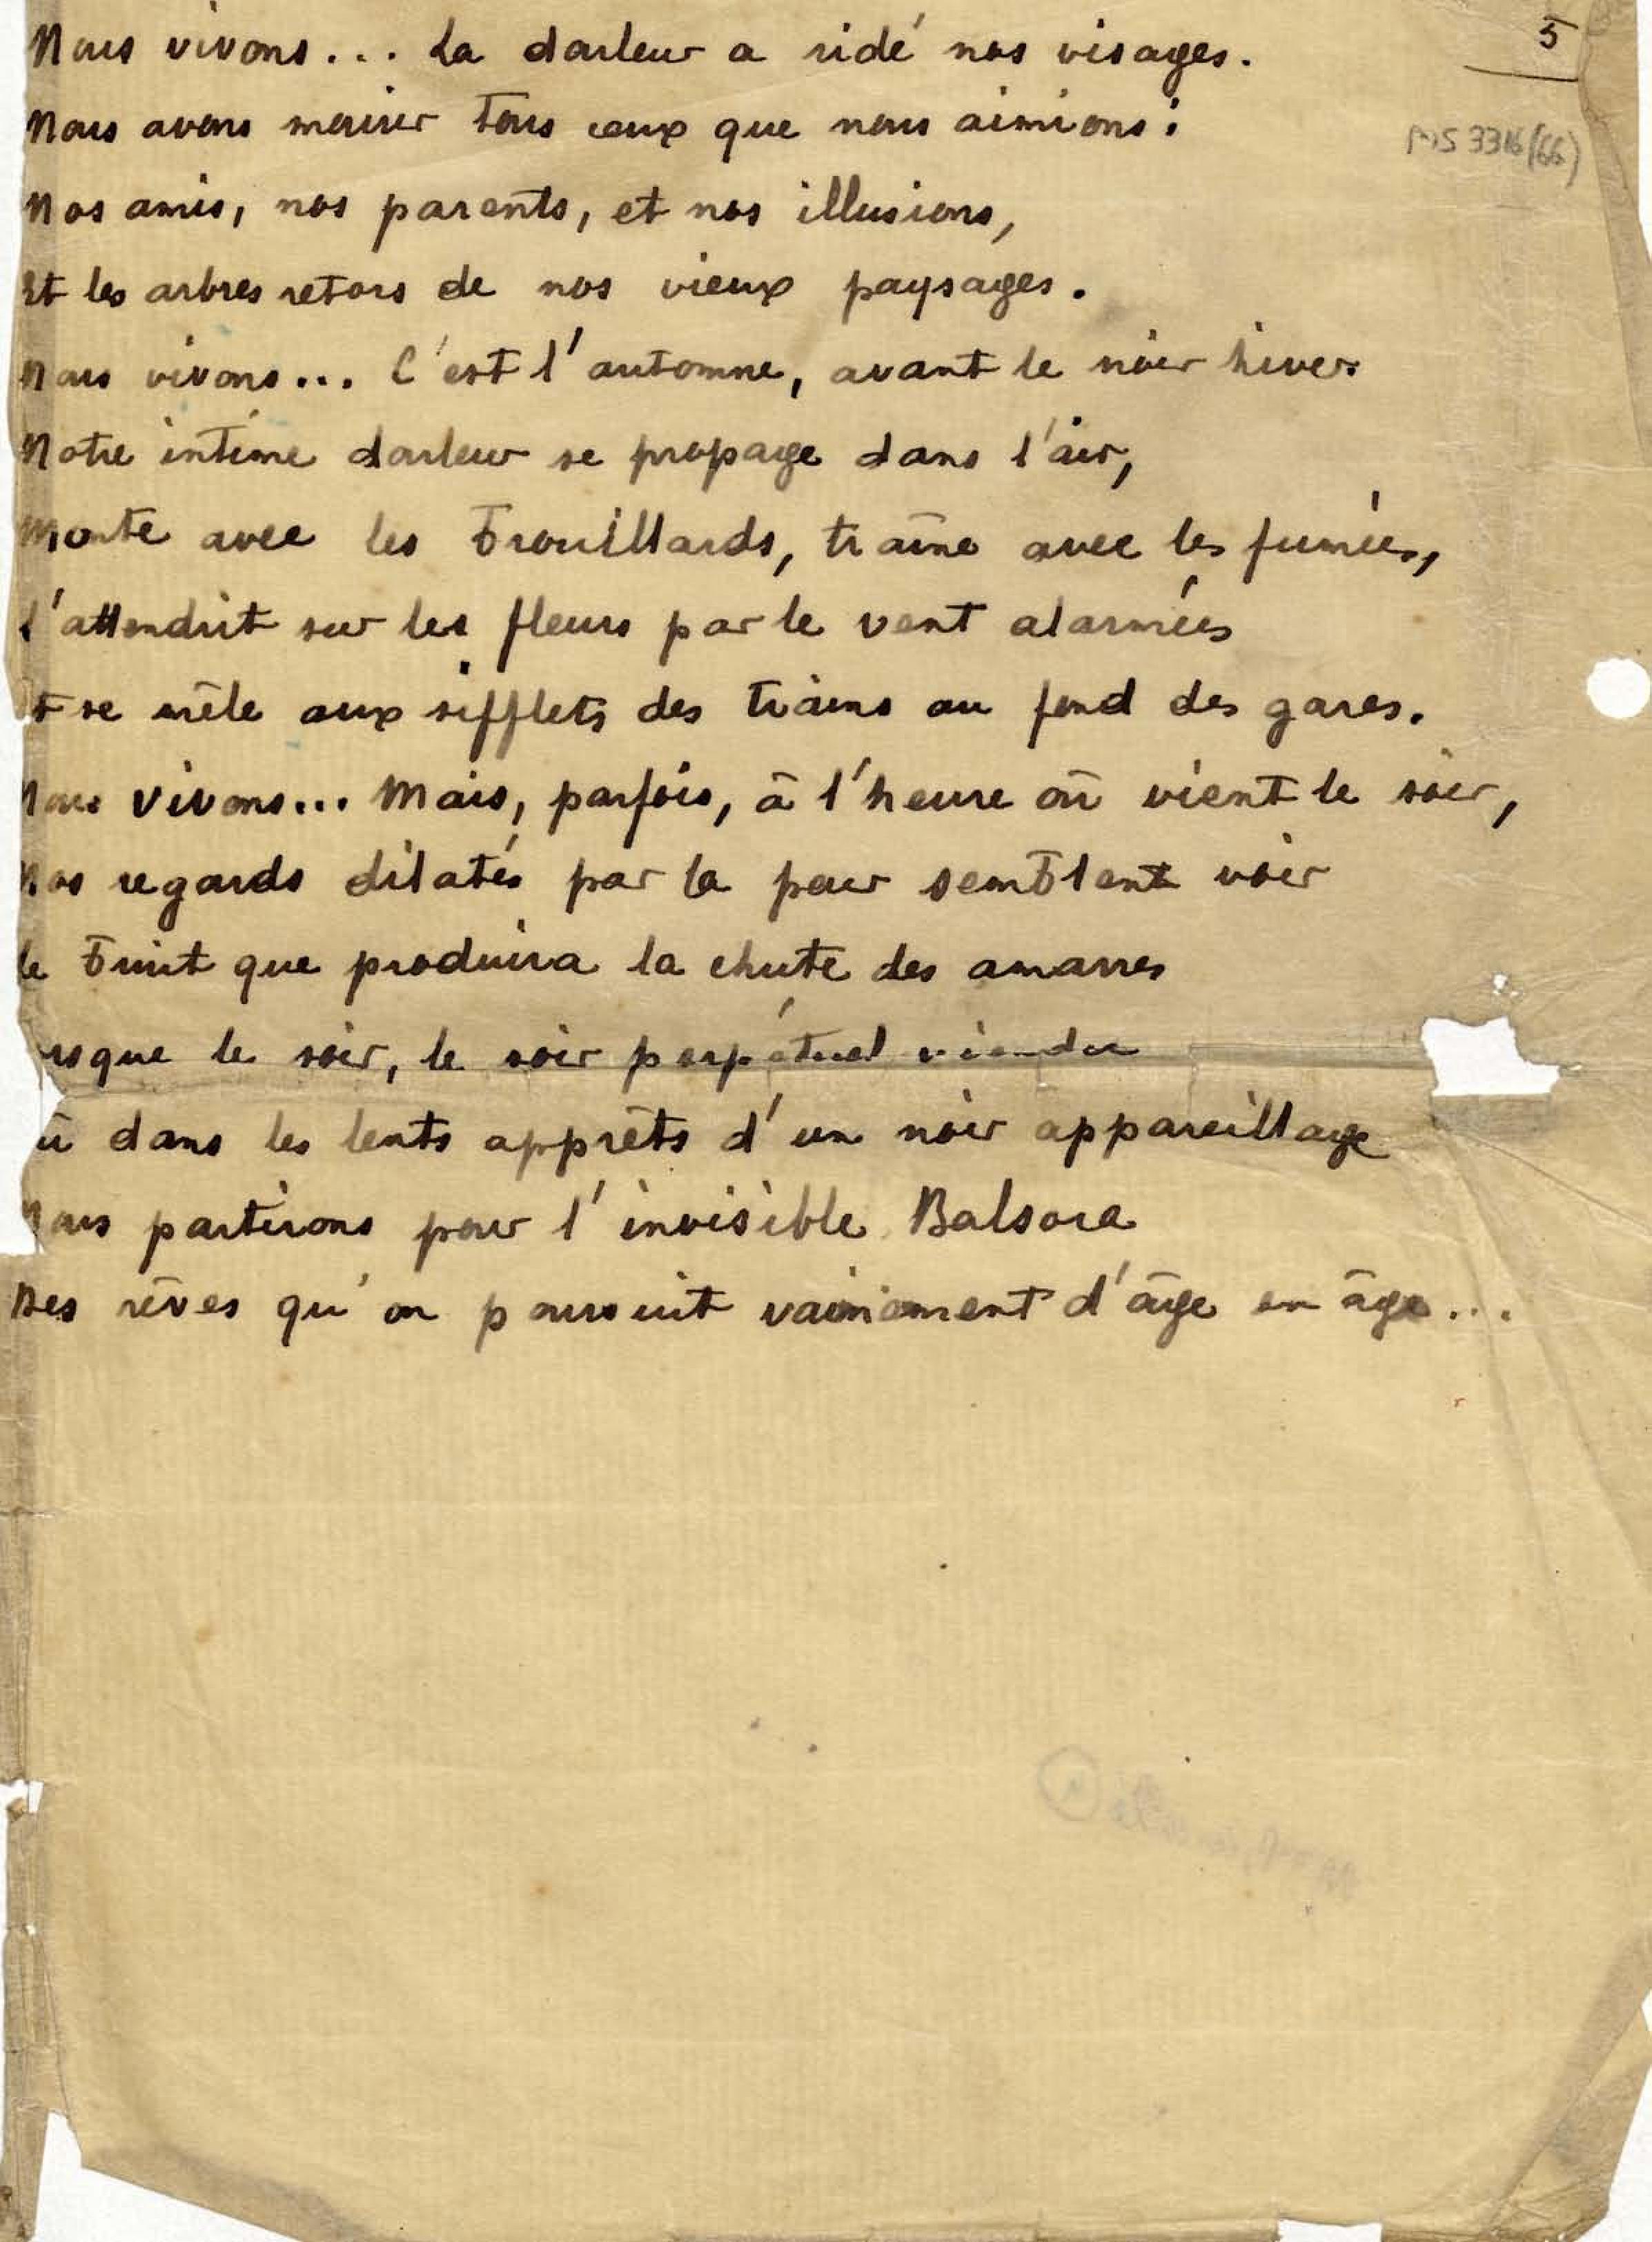 5
MS 3316 (66)
Nous vivons... La douleur a ridé nos visages.
Nous avons mourir tous ceux que nous aimions:
Nos amis, nos parents, et nos illusions,
Et les arbres retors de nos vieux paysages.
Nous vivons... C'est l'automne, avant le noir hiver.
Notre intime douleur se propage dans l'air,
Monte avec les brouillards, traîne avec les fumées,
S'attendrit sur les fleurs par le vent alarmées
Et se mêle aux sifflets des trains au fond des gares.
Nous vivons... Mais, parfois, à l'heure où vient le soir,
Nos regards dilatés par la peur semblent voir
Le bruit que produira la chute des amarres
rsque le soir, le soir perpétuel viendra
ù dans les lents apprêts d'un noir appareillage
Nous partirons pour l'invisible Balsora
Des rêves qu'on poursuit vainement d'âge en âge...